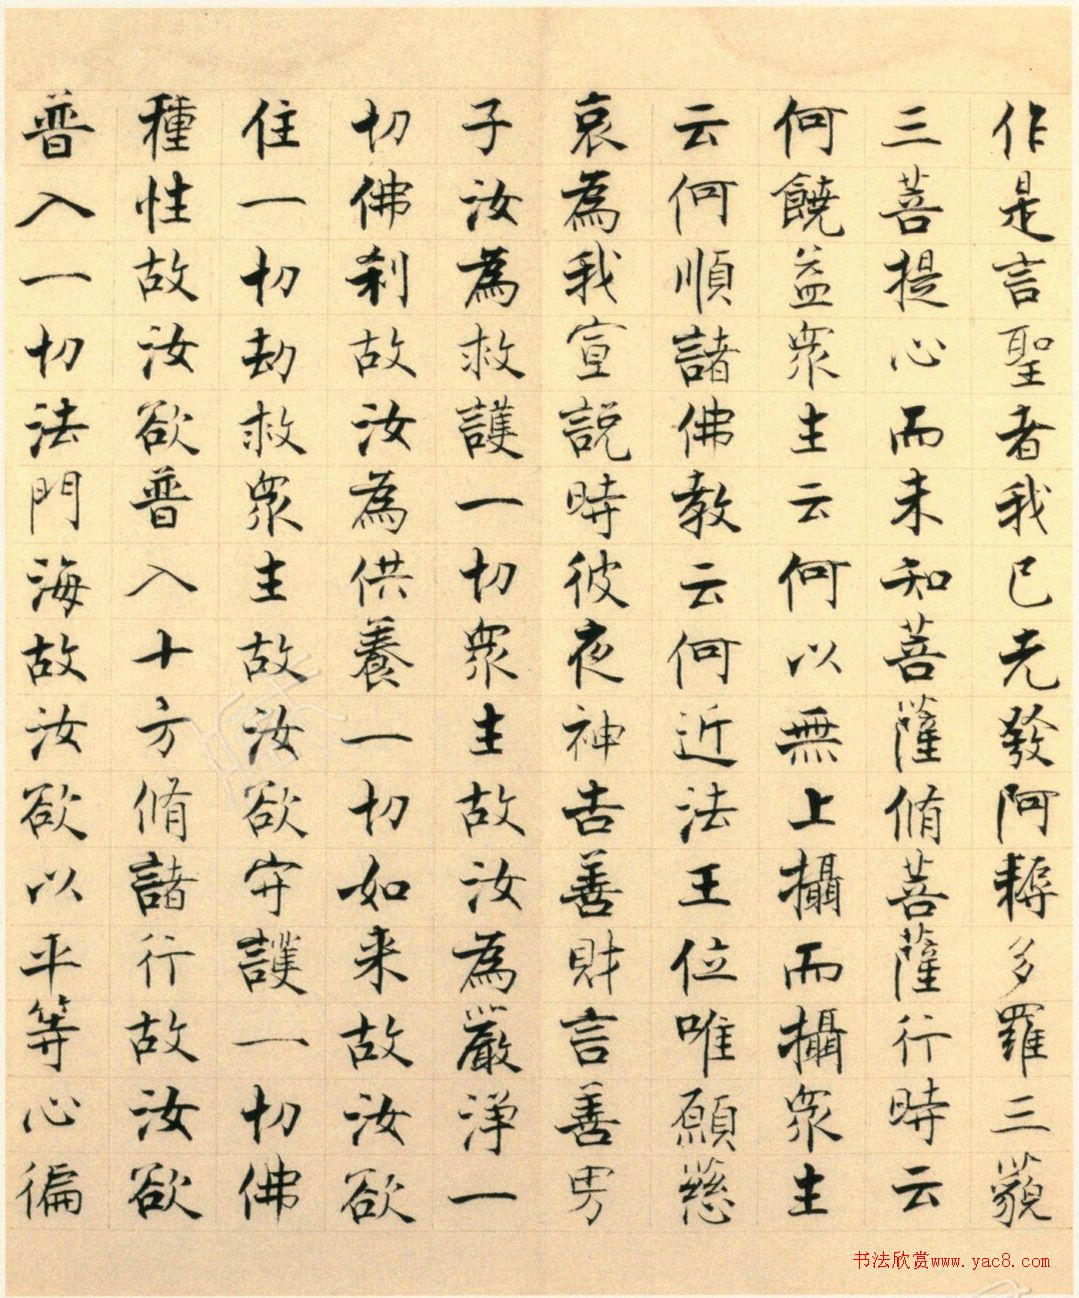 作是言聖者我已先發阿耨多羅三藐
三菩提心而未知菩薩脩菩薩行時云
何饒益眾生云何以無上攝而攝眾生
云何順諸佛教云何近法王位唯願慈
哀為我宣説時彼夜神告善財言善男
子汝為救護一切眾生故汝為嚴淨一
切佛刹故汝為供養一切如来故汝欲
住一切劫救眾生故汝欲守護一切佛
種性故汝欲普入十方脩諸行故汝欲
普入一切法門海故汝欲以平等心徧
书法欣赏www.yac8.com